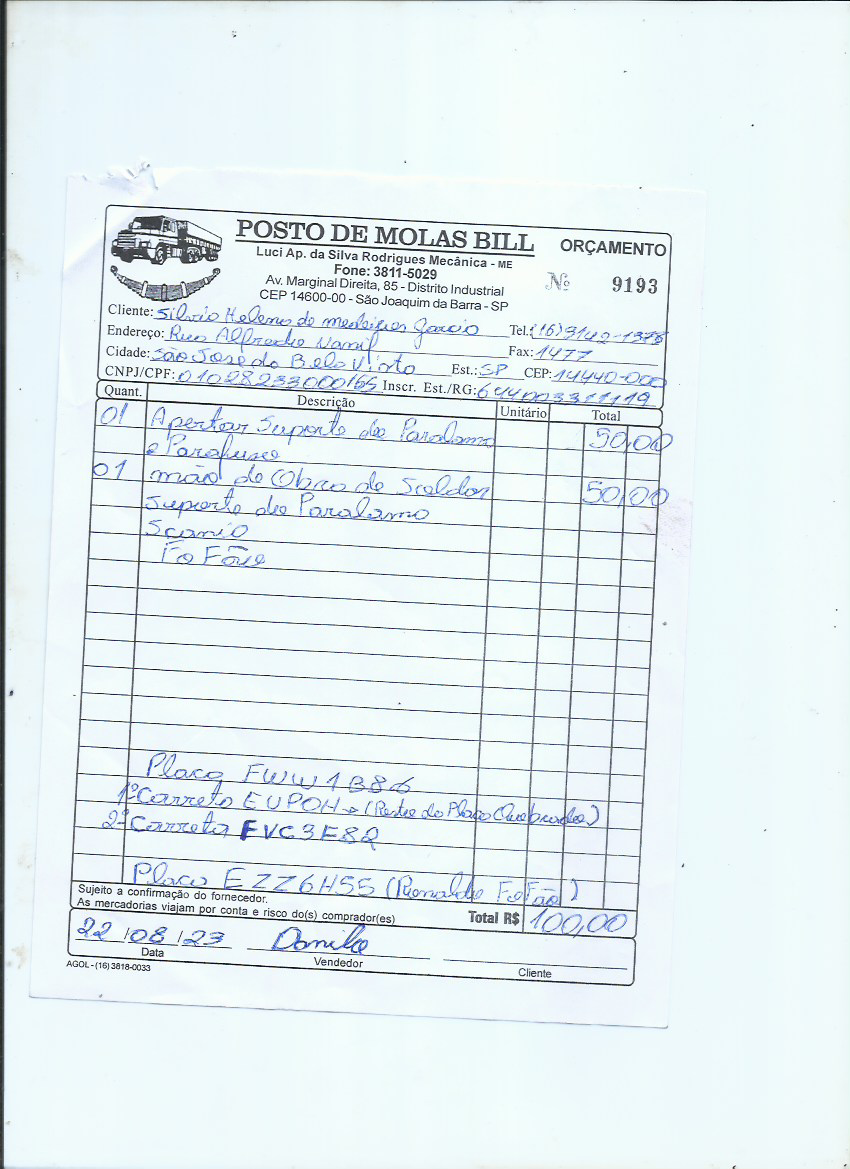 POSTO DE MOLAS BILL
ORÇAMENTO
Luci Ap. da Silva Rodrigues Mecânica - ME
Fone: 3811-5029
Nº 9193
Av. Marginal Direita, 85 - Distrito Industrial
CEP 14600-00 - São Joaquim da Barra - SP
Cliente: Silvio Helenes de medeiros Garcia Tel.: (16) 3142-1378
Endereço: Rua Alfredo Fax: 1477
Cidade: São José do Bela Vista Est.: SP CEP: 14440-000
CNPJ/CPF: 01028233000165 Inscr. Est./RG:
Quant. Descrição Unitário Total
01 Apertar Suporte de Paralama 50,00
e Parafuso
01 mão de Obra de Soldar 50,00
Suporte de Paralama
Scania
Fo Fão
Placa FWW1B86
1ª Carreta EUPOH → (Resto do Placa Quebrada)
2ª Carreta FVC3E82
Placa EZZ6H55 (Ronaldo FoFão)
Sujeito a confirmação do fornecedor.
As mercadorias viajam por conta e risco do(s) comprador(es)
Total R$ 100,00
22/08/23 Danilo
Data Vendedor Cliente
AGOL - (16) 3818-0033